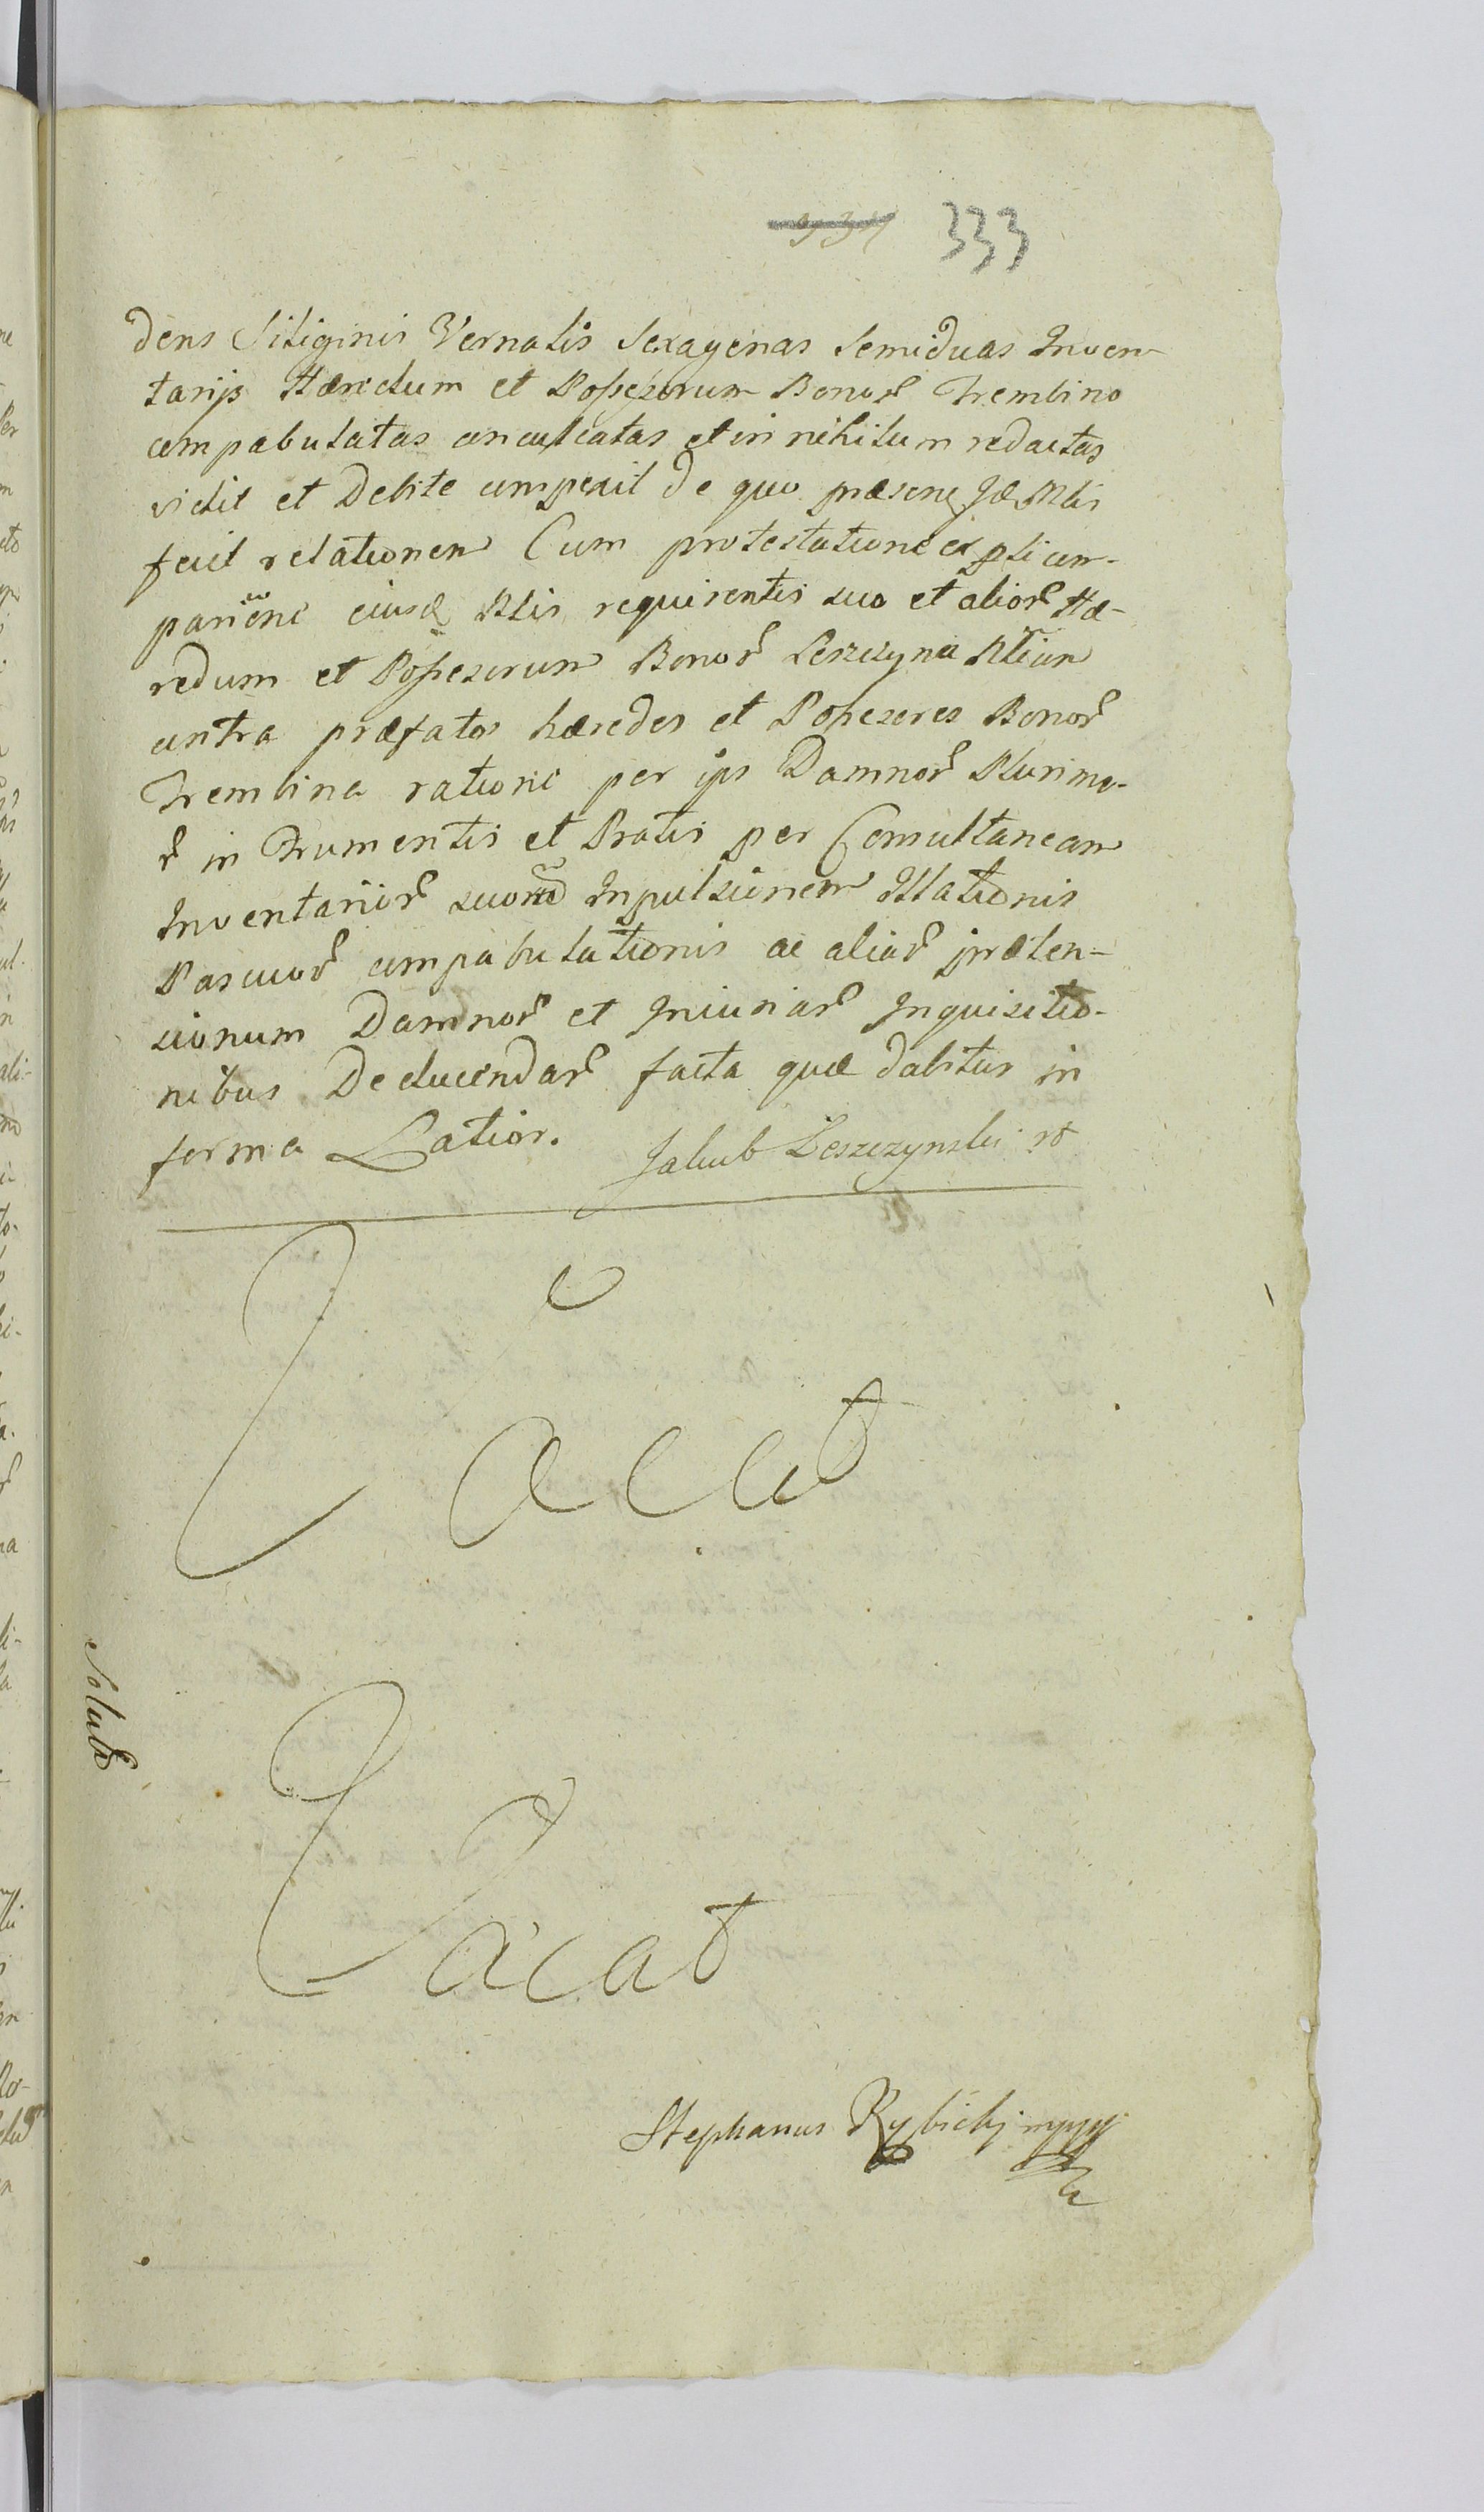 333
dens Siliginis Vernalis Sexagenas Semiduas Inven-
tarijs Hæredum et Possessorum Bonor Trembino
compabulatas conculcatas et in nihilum redactas
vidit et Debite comperit de quo præsens
fecit relationem Cum protestatione ex
eiusd Nlis requirentis suo et alior Hæ-
redum et Possesorum Bonor Leszczyna
contra præfatos hæredes et Possesores Bonor
Trembina ratione per ips Damnor Plurimo-
r in Frumentis et Pratis per Consultaneam
Inventarior suor Inpulsionem Illationis
Pascuor compabulationis ac aliar præten-
sionum Damnor et Iniuriar Inquisitio-
nibus Deducendar facta quæ dabitur in
forma Latior. Jakub Leszczynski
Vacat
Vacat
Solut
Stephanus Rybicky mpp